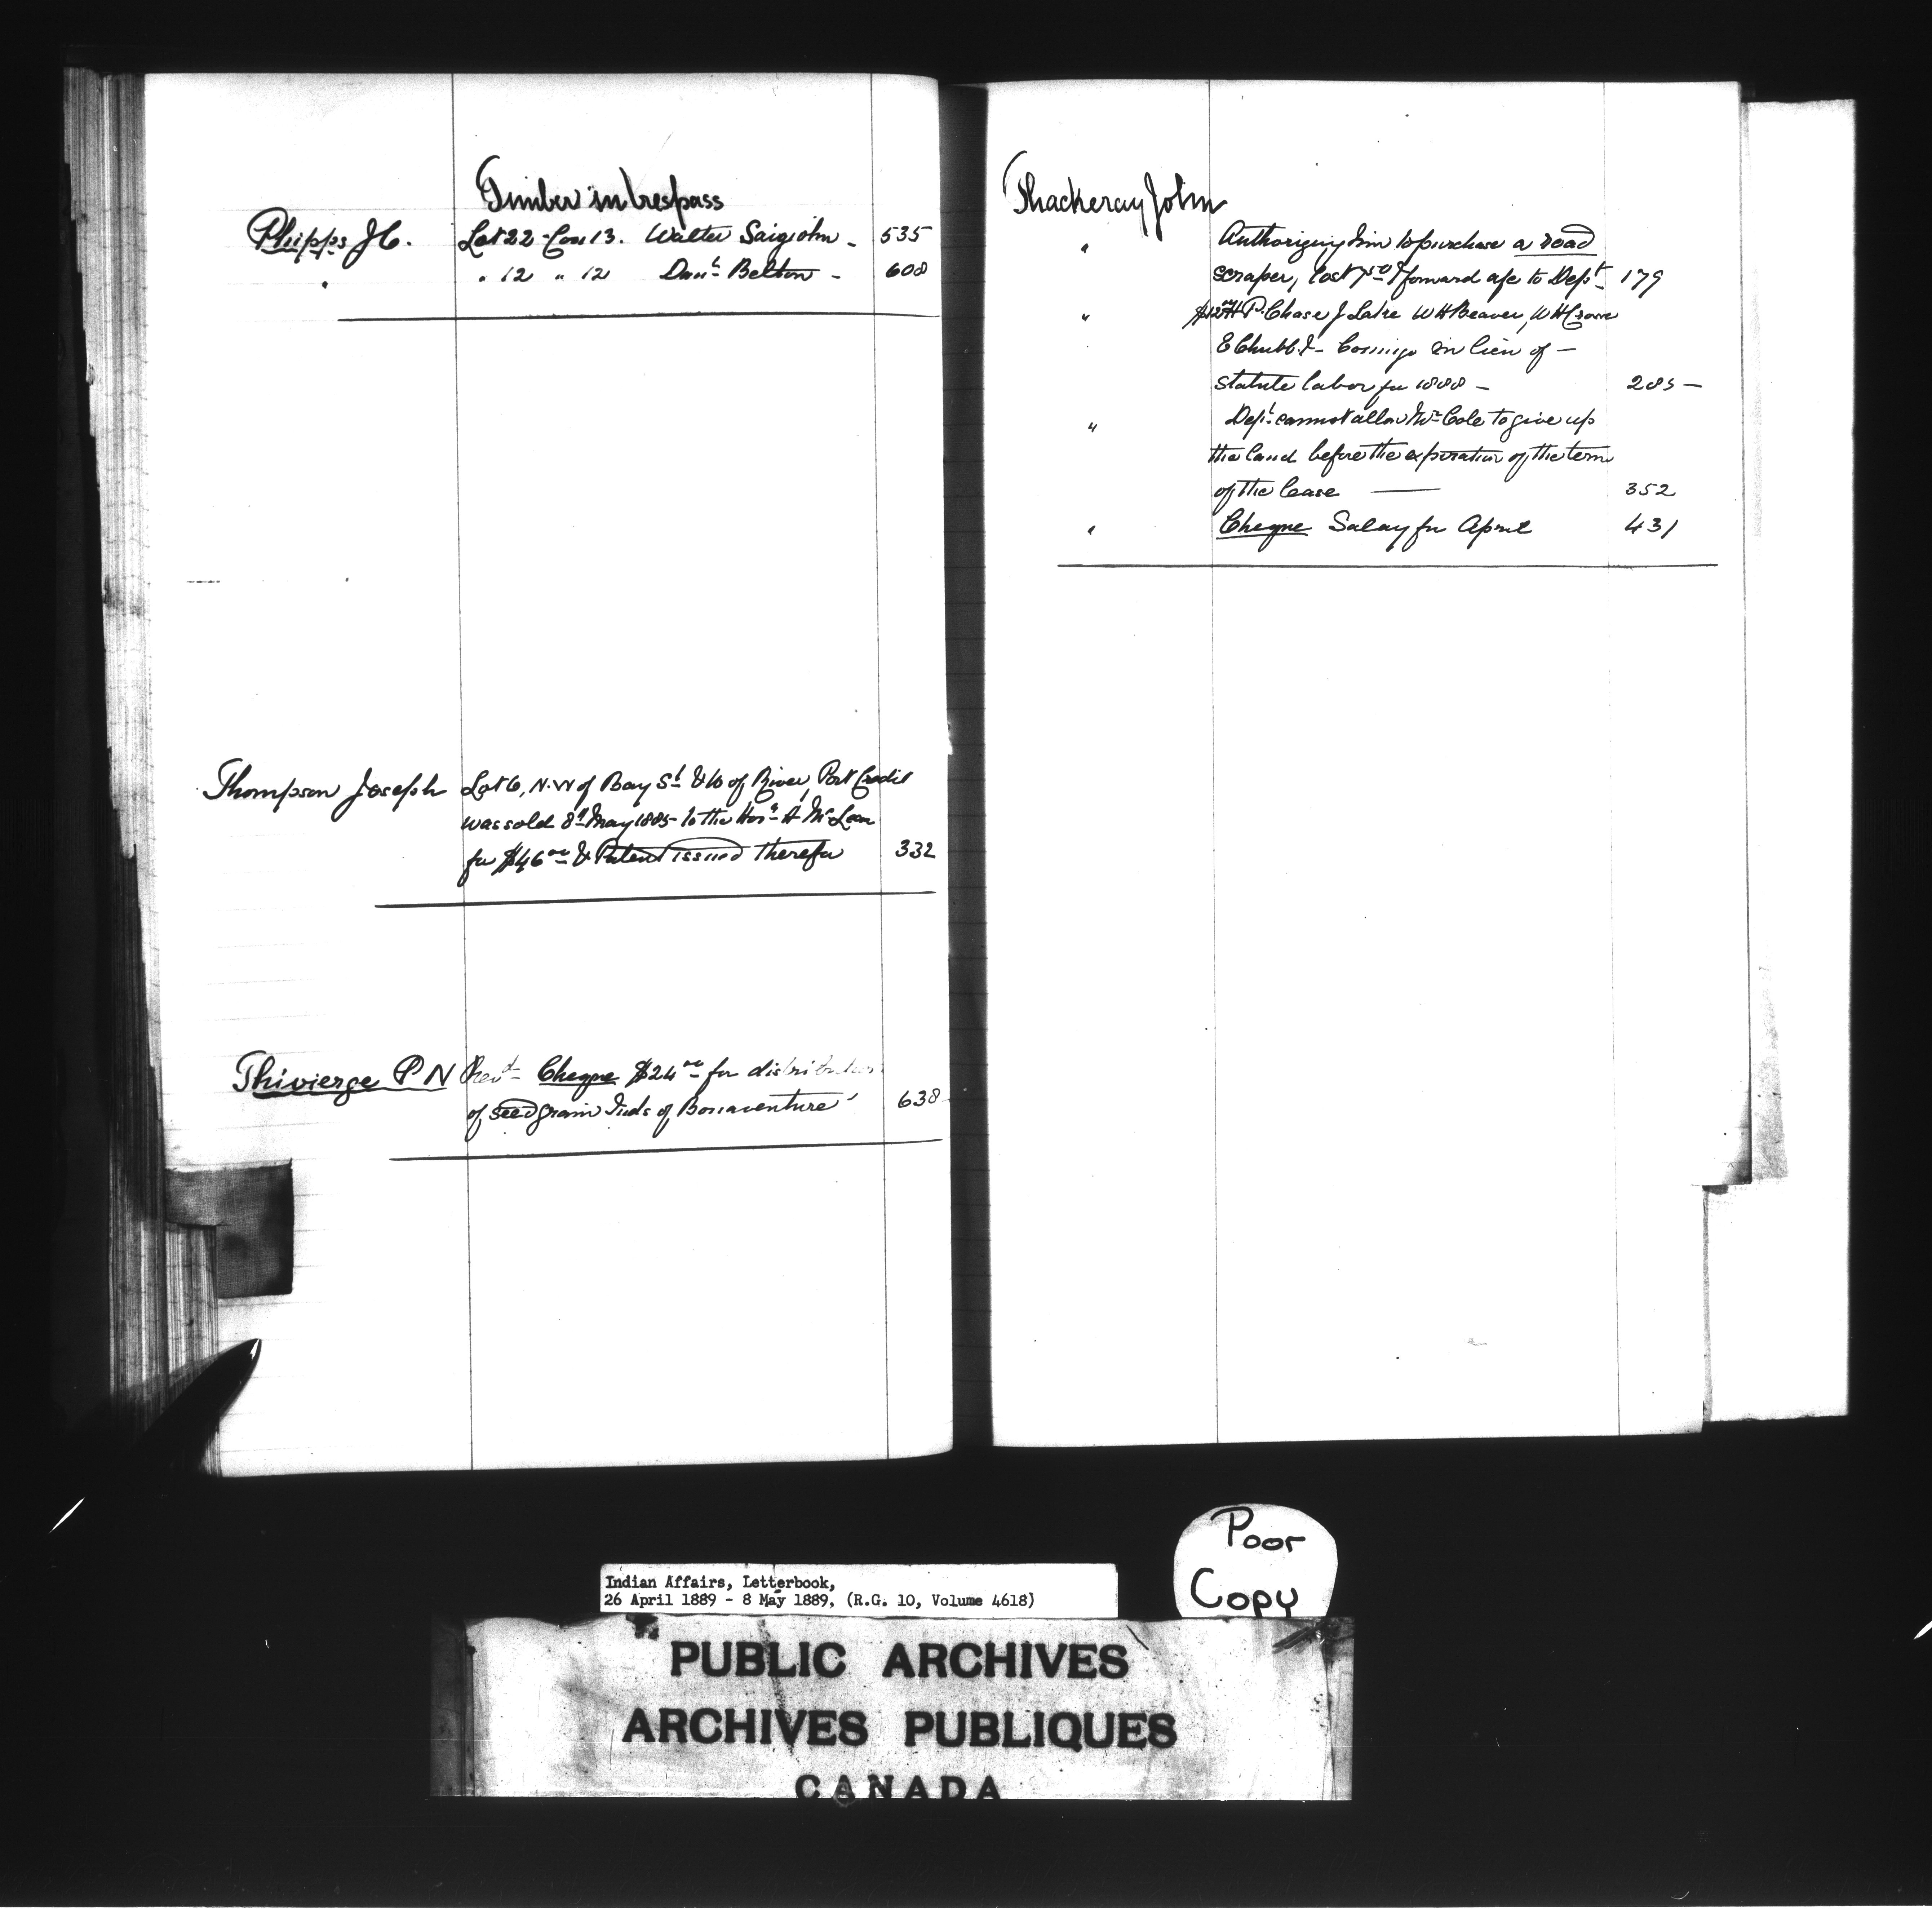 Timber in trespass
Phipps J C. Lot 22 - Con 13. Walter Saigiohn - 535
" " 12 " 12 Danl Belton - 608
Thompson Joseph Lot 6, N.W of Bay St & W of River, Port Credit
was sold 8th May 1885 to the Honl A McLean
for $46 00 & Patent issued therefor 332
Thivierge P N Revd Cheque $24 00 for distribution
of seed grain Inds of Bonaventure 638
Thackeray John
" Authorizing him to purchase a road
scraper, Cost 7 50 & forward a/c to Dept 179
" $12 H P. Chase J Lake W H Beaver, W H Crowe
E Chubb & - Comego in lieu of -
statute labor for 1888 - 285 -
" Dept cannot allow Mr Cole to give up
the land before the expiration of the term
of the lease 352
" Cheque Salary for April 431
Poor
Copy
Indian Affairs, Letterbook,
26 April 1889 - 8 May 1889, (R.G. 10, Volume 4618)
PUBLIC ARCHIVES
ARCHIVES PUBLIQUES
CANADA